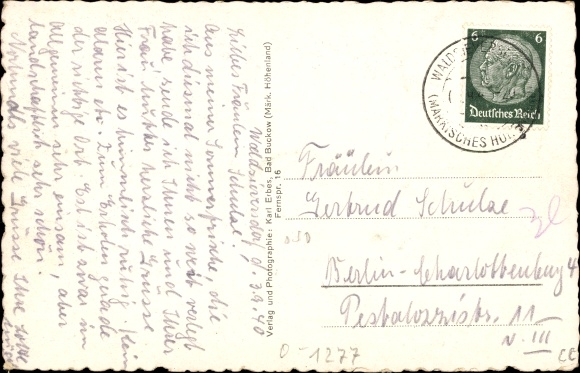 Waldsieversdorf, d. 3.9.40
Liebes Fräulein Schulze!
Aus meiner Sommerfrische, die
ich diesmal nicht so weit verlegt
habe, sende ich Ihnen und Ihrer
Frau Mutter herzliche Grüsse.
Hier ist es himmlisch ruhig. Kein
Alarm etc. Zum Erholen gerade
der richtige Ort. Es ist zwar im
allgemeinen sehr einsam, aber
landschaftlich sehr schön.
Nochmals viele Grüsse Ihre
Verlag und Photographie: Karl Erbes, Bad Buckow (Märk. Höhenland)
Fernspr. 16
6 6
Deutsches Reich
(MÄRKISCHES
Fräulein
Gertrud Schulze
Berlin-Charlottenburg 4
Pestalozzistr. 11
v. III
0-1277
CE